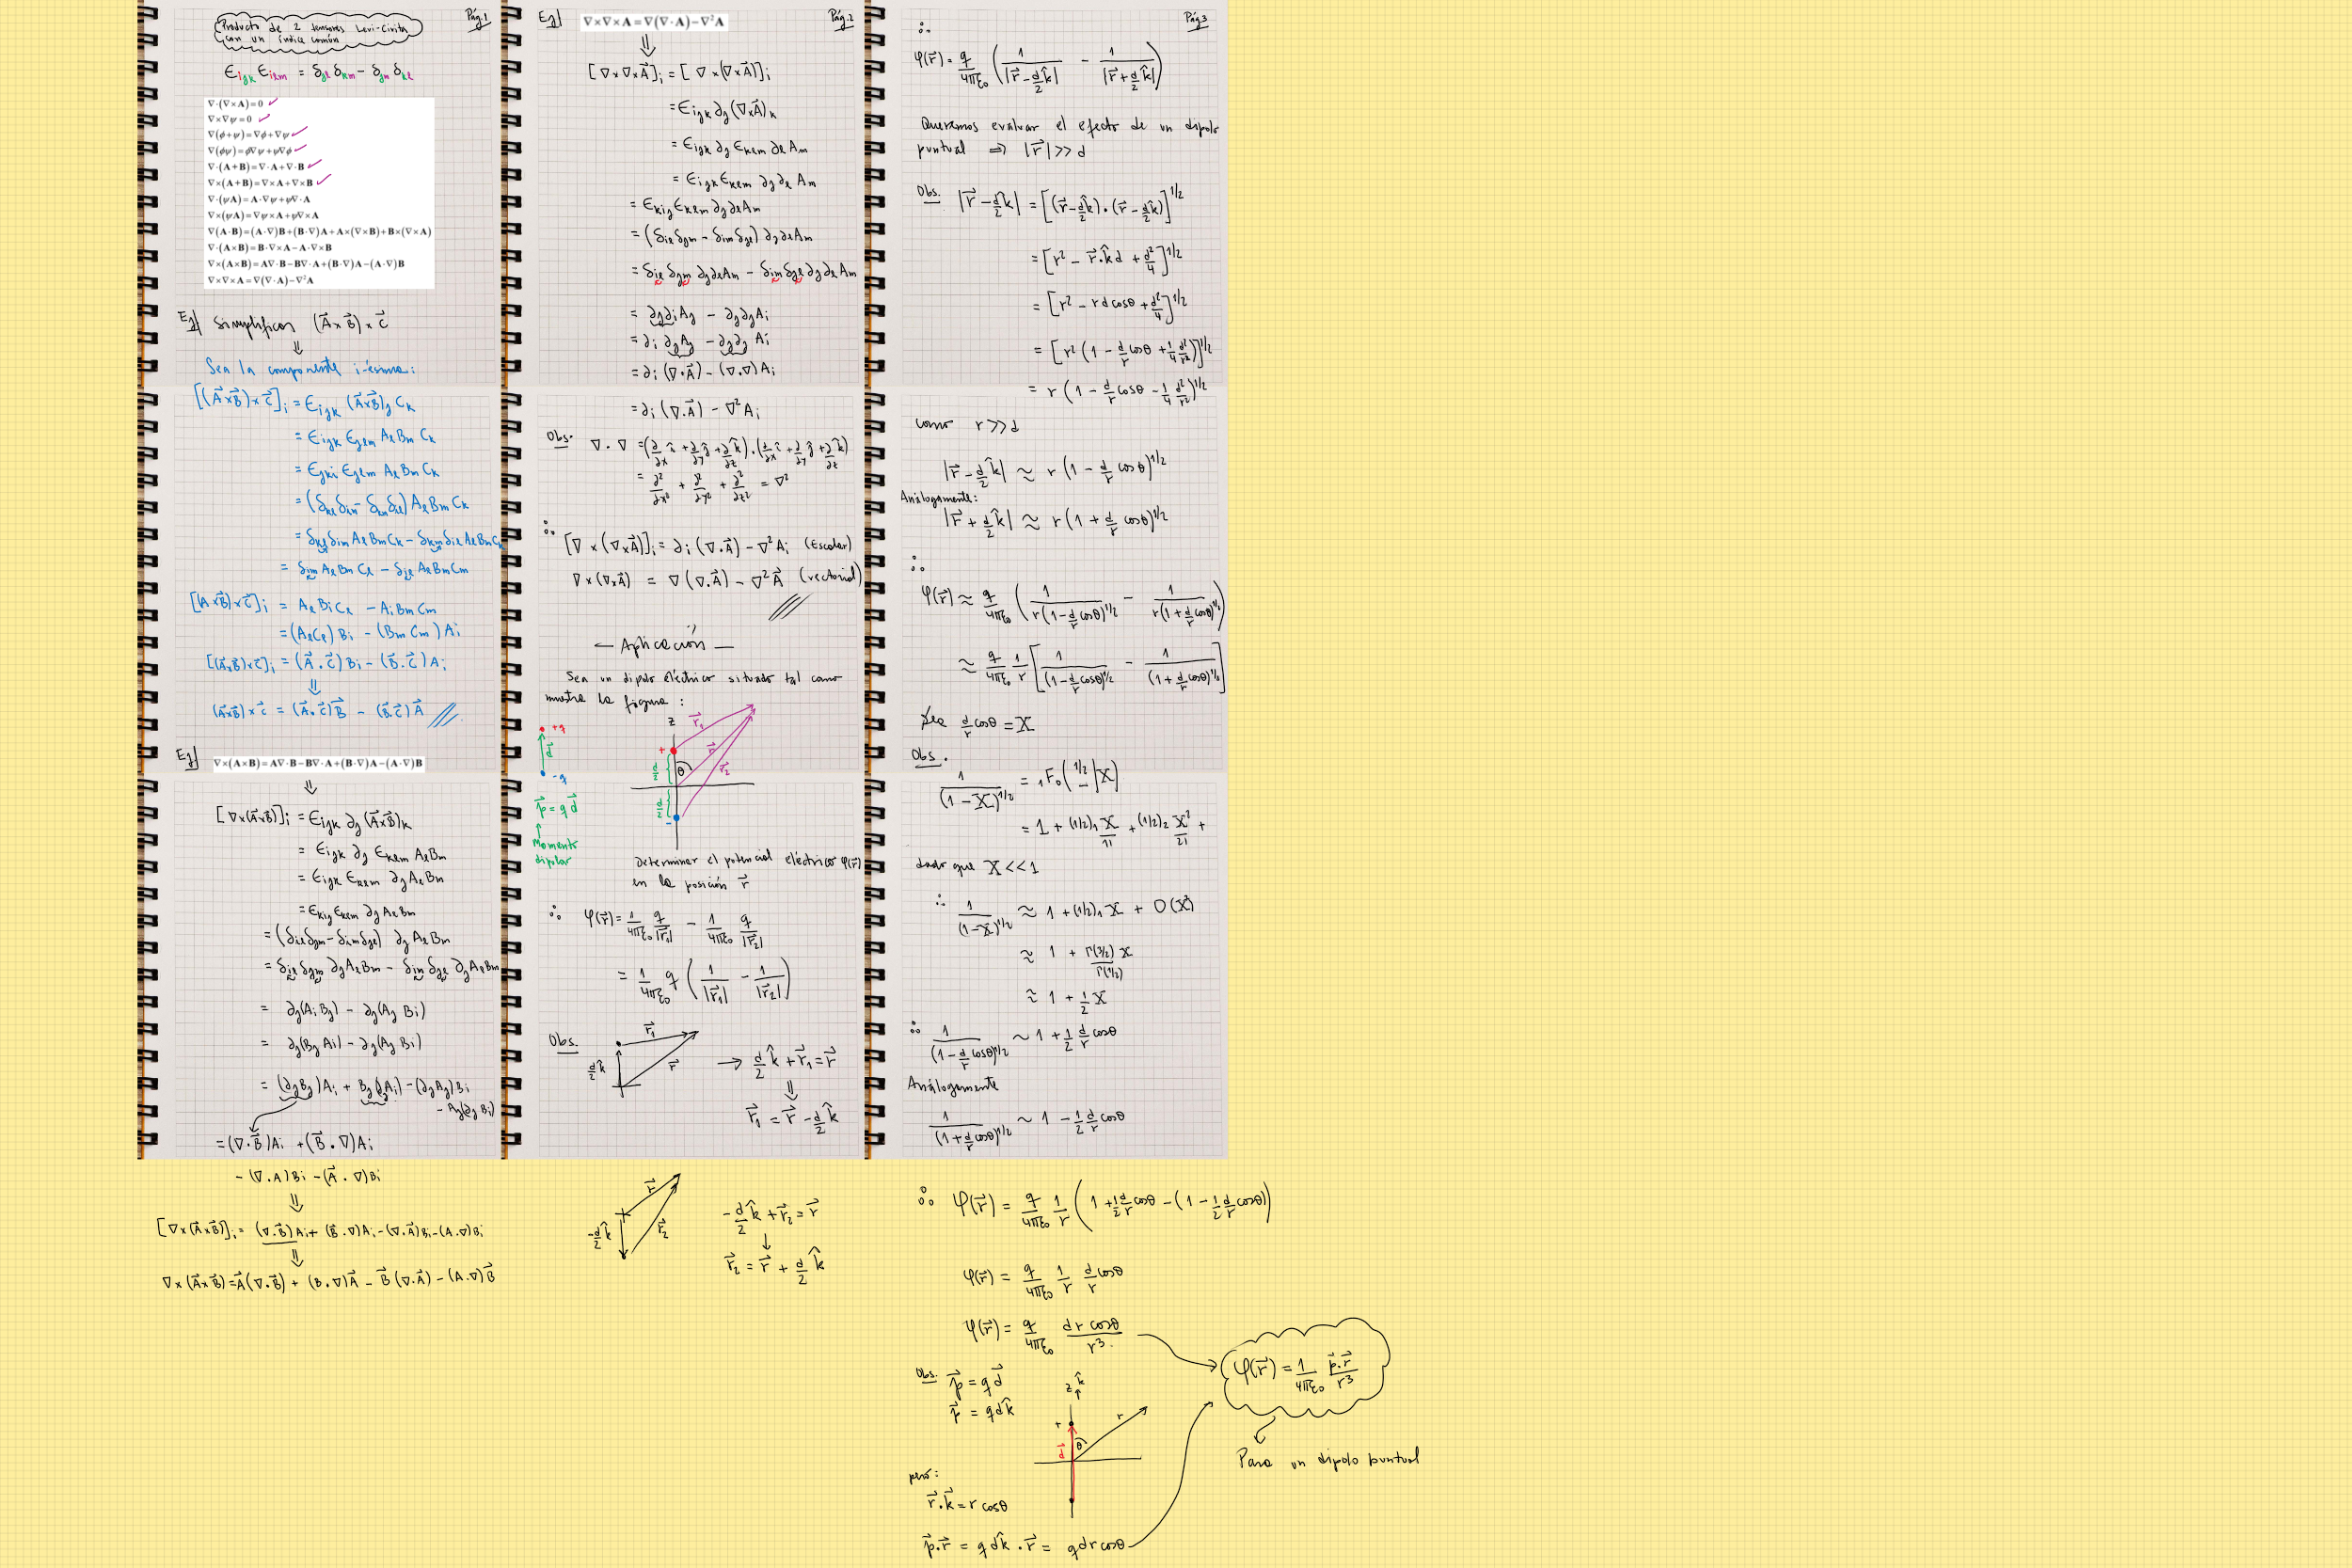 Producto de 2 tensores Levi-Civita
con un índice común
Pág.1
ϵijk ϵilm = δjl δkm − δjm δkl
∇·(∇×A)=0
∇×∇ψ=0
∇(ϕ+ψ)=∇ϕ+∇ψ
∇(ϕψ)=ϕ∇ψ+ψ∇ϕ
∇·(A+B)=∇·A+∇·B
∇×(A+B)=∇×A+∇×B
∇·(ψA)=A·∇ψ+ψ∇·A
∇×(ψA)=∇ψ×A+ψ∇×A
∇(A·B)=(A·∇)B+(B·∇)A+A×(∇×B)+B×(∇×A)
∇·(A×B)=B·∇×A−A·∇×B
∇×(A×B)=A∇·B−B∇·A+(B·∇)A−(A·∇)B
∇×∇×A=∇(∇·A)−∇²A
Ej] Simplificar (A⃗×B⃗)×C⃗
⇓
Sea la componente i-ésima:
[(A⃗×B⃗)×C⃗]i = ϵijk (A⃗×B⃗)j Ck
= ϵijk ϵjlm Al Bm Ck
= ϵjki ϵjlm Al Bm Ck
= (δkl δim − δkm δil) Al Bm Ck
= δkl δim Al Bm Ck − δkm δil Al Bm Ck
= δim Al Bm Cl − δil Al Bm Cm
[(A⃗×B⃗)×C⃗]i = Al Bi Cl − Ai Bm Cm
= (Al Cl) Bi − (Bm Cm) Ai
[(A⃗×B⃗)×C⃗]i = (A⃗.C⃗) Bi − (B⃗.C⃗) Ai
⇓
(A⃗×B⃗)×C⃗ = (A⃗.C⃗)B⃗ − (B⃗.C⃗)A⃗
Ej] ∇×(A×B)=A∇·B−B∇·A+(B·∇)A−(A·∇)B
⇓
[∇×(A⃗×B⃗)]i = ϵijk ∂j (A⃗×B⃗)k
= ϵijk ∂j ϵklm Al Bm
= ϵijk ϵklm ∂j Al Bm
= ϵkij ϵklm ∂j Al Bm
= (δil δjm − δim δjl) ∂j Al Bm
= δil δjm ∂j Al Bm − δim δjl ∂j Al Bm
= ∂j(Ai Bj) − ∂j(Aj Bi)
= ∂j(Bj Ai) − ∂j(Aj Bi)
= (∂j Bj)Ai + Bj(∂j Ai) − (∂j Aj)Bi
− Aj(∂j Bi)
= (∇.B⃗)Ai + (B⃗.∇)Ai
− (∇.A)Bi − (A⃗.∇)Bi
⇓
[∇×(A⃗×B⃗)]i = (∇.B⃗)Ai + (B⃗.∇)Ai − (∇.A⃗)Bi − (A.∇)Bi
⇓
∇×(A⃗×B⃗) = A⃗(∇.B⃗) + (B.∇)A⃗ − B⃗(∇.A⃗) − (A.∇)B⃗
Ej] ∇×∇×A=∇(∇·A)−∇²A
Pág.2
⇓
[∇×∇×A⃗]i = [∇×(∇×A⃗)]i
= ϵijk ∂j (∇×A⃗)k
= ϵijk ∂j ϵklm ∂l Am
= ϵijk ϵklm ∂j ∂l Am
= ϵkij ϵklm ∂j ∂l Am
= (δil δjm − δim δjl) ∂j ∂l Am
= δil δjm ∂j ∂l Am − δim δjl ∂j ∂l Am
= ∂j ∂i Aj − ∂j ∂j Ai
= ∂i ∂j Aj − ∂j ∂j Ai
= ∂i (∇.A⃗) − (∇.∇) Ai
= ∂i (∇.A⃗) − ∇² Ai
Obs. ∇.∇ = (∂/∂x î + ∂/∂y ĵ + ∂/∂z k̂).(∂/∂x î + ∂/∂y ĵ + ∂/∂z k̂)
= ∂²/∂x² + ∂²/∂y² + ∂²/∂z² = ∇²
∴ [∇×(∇×A⃗)]i = ∂i (∇.A⃗) − ∇² Ai (Escalar)
∇×(∇×A⃗) = ∇(∇.A⃗) − ∇²A⃗ (vectorial)
— Aplicación —
Sea un dipolo eléctrico situado tal como
muestra la figura:
+q
d⃗
-q
p⃗ = q d⃗
↑
Momento
dipolar
z
+
r⃗1
r⃗
r⃗2
θ
d/2
d/2
-
Determinar el potencial eléctrico φ(r⃗)
en la posición r⃗
∴ φ(r⃗) = 1/4πε0 q/|r⃗1| − 1/4πε0 q/|r⃗2|
= 1/4πε0 q (1/|r⃗1| − 1/|r⃗2|)
Obs.
r⃗1
r⃗
d/2 k̂
→ d/2 k̂ + r⃗1 = r⃗
⇓
r⃗1 = r⃗ − d/2 k̂
r⃗
-d/2 k̂
r⃗2
-d/2 k̂ + r⃗2 = r⃗
↓
r⃗2 = r⃗ + d/2 k̂
Pág3
∴
φ(r⃗) = q/4πε0 (1/|r⃗ − d/2 k̂| − 1/|r⃗ + d/2 k̂|)
Queremos evaluar el efecto de un dipolo
puntual ⇒ |r⃗| >> d
Obs. |r⃗ − d/2 k̂| = [(r⃗ − d/2 k̂).(r⃗ − d/2 k̂)]^1/2
= [r² − r⃗.k̂ d + d²/4]^1/2
= [r² − r d cosθ + d²/4]^1/2
= [r² (1 − d/r cosθ + 1/4 d²/r²)]^1/2
= r (1 − d/r cosθ − 1/4 d²/r²)^1/2
como r >> d
|r⃗ − d/2 k̂| ≈ r (1 − d/r cosθ)^1/2
Análogamente:
|r⃗ + d/2 k̂| ≈ r (1 + d/r cosθ)^1/2
∴
φ(r⃗) ≈ q/4πε0 (1/r(1 − d/r cosθ)^1/2 − 1/r(1 + d/r cosθ)^1/2)
≈ q/4πε0 1/r [1/(1 − d/r cosθ)^1/2 − 1/(1 + d/r cosθ)^1/2]
Sea d/r cosθ = X
Obs.
1/(1 − X)^1/2 = 1F0(1/2 − | X)
= 1 + (1/2)1 X/1! + (1/2)2 X²/2! +
dado que X << 1
∴ 1/(1 − X)^1/2 ≈ 1 + (1/2)1 X + O(X²)
≈ 1 + Γ(3/2)/Γ(1/2) X
≈ 1 + 1/2 X
∴ 1/(1 − d/r cosθ)^1/2 ~ 1 + 1/2 d/r cosθ
Análogamente
1/(1 + d/r cosθ)^1/2 ~ 1 − 1/2 d/r cosθ
∴ φ(r⃗) = q/4πε0 1/r (1 + 1/2 d/r cosθ − (1 − 1/2 d/r cosθ))
φ(r⃗) = q/4πε0 1/r d/r cosθ
φ(r⃗) = q/4πε0 d r cosθ/r³.
Obs. p⃗ = q d⃗
p⃗ = q d k̂
z k̂
+
r
θ
d⃗
pero:
r⃗.k⃗ = r cosθ
p⃗.r⃗ = q d k̂ . r⃗ = q d r cosθ
φ(r⃗) = 1/4πε0 p⃗.r⃗/r³
Para un dipolo puntual